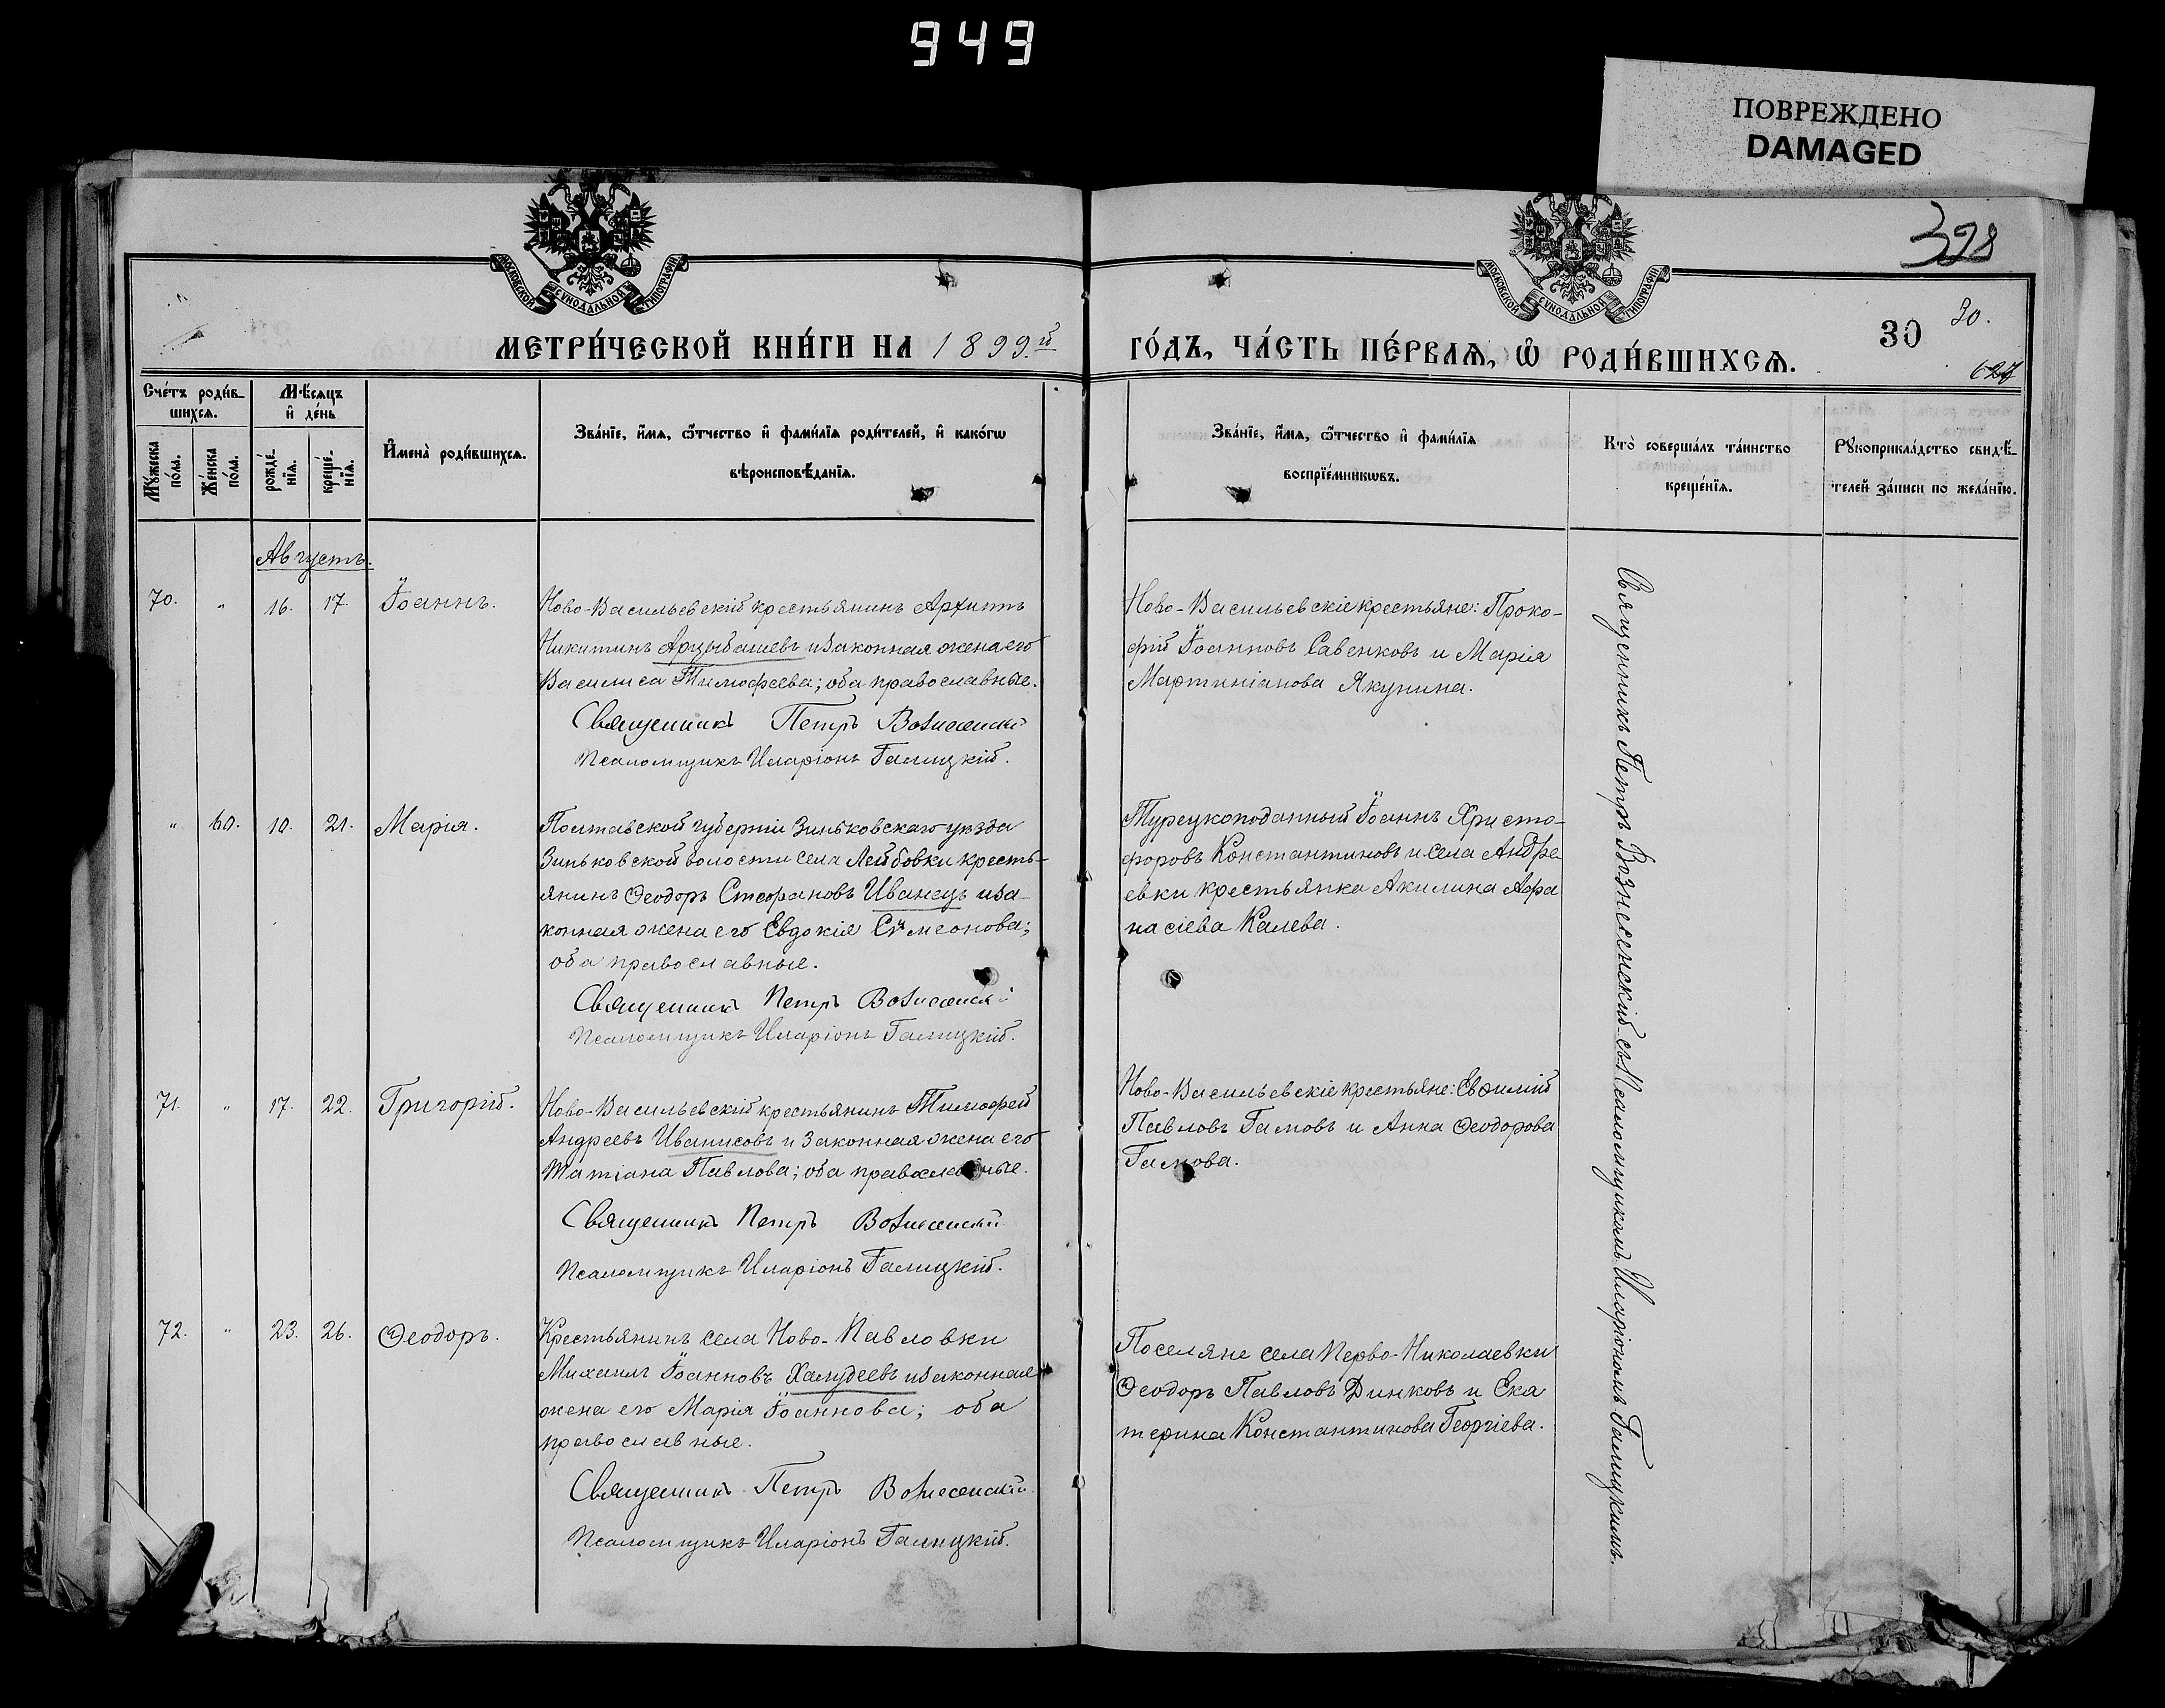 949
ПОВРЕЖДЕНО
DAMAGED
МОСКОВСКОЙ СѴНОДАЛЬНОЙ ТИПОГРАФІИ
МОСКОВСКОЙ СѴНОДАЛЬНОЙ ТИПОГРАФІИ
398
30
30.
МЕТРИ́ЧЕСКОЙ КНИ́ГИ НА 1899й
ГО́ДЪ, ЧА́СТЬ ПЕ́РВАѦ, Ѽ РОДИ́ВШИХСѦ.
Сче́тъ роди́в-
шихсѧ.
Мѣ́сѧцъ
и҆ де́нь
Мꙋ́жеска
по́ла.
Же́нска
по́ла.
рожде́-
нїѧ.
креще́-
нїѧ.
И҆мена̀ роди́вшихсѧ.
Зва́нїе, и҆́мѧ, ѻ҆́тчество и҆ фами́лїѧ роди́телей, и҆ како́гѡ
вѣроисповѣ́данїѧ.
Зва́нїе, и҆́мѧ, ѻ҆́тчество и҆ фами́лїѧ
воспрїе́мникѡвъ.
Кто̀ соверша́лъ та́инство
креще́нїѧ.
Рꙋкоприкла́дство свидѣ́-
телей за́писи по жела́нїю.
Августъ.
70. " 16. 17. Іоаннъ.
Ново-Васильевскій крестьянинъ Архиппъ
Никитинъ Арцыбашевъ и законная жена его
Василиса Тимофеева; оба православные.
Священникъ Петръ Вознесенскій
Псаломщикъ Иларіонъ Галицкій.
Ново-Васильевскіе крестьяне: Проко-
фій Іоанновъ Савенковъ и Марія
Мартиніанова Якунина.
" 60. 10. 21. Марія.
Полтавской губерніи Зиньковскаго уѣзда
Зиньковской волости села Лейбовки кресть-
янинъ Ѳеодоръ Стефановъ Иванецъ и за-
конная жена его Евдокія Сѵмеонова;
оба православные.
Священникъ Петръ Вознесенскій
Псаломщикъ Иларіонъ Галицкій.
Турецкоподанный Іоаннъ Христо-
форовъ Константиновъ и села Андре-
евки крестьянка Акилина Афа
насіева Калева.
71. " 17. 22. Григорій.
Ново-Васильевскій крестьянинъ Тимофей
Андреевъ Иванисовъ и законная жена его
Татіана Павлова; оба православные.
Священникъ Петръ Вознесенскій
Псаломщикъ Иларіонъ Галицкій.
Ново-Васильевскіе крестьяне: Евѳимій
Павловъ Гамовъ и Анна Ѳеодорова
Гамова.
72. " 23. 26. Ѳеодоръ.
Крестьянинъ села Ново-Павловки
Михаилъ Іоанновъ Халудеевъ и законная
жена его Марія Іоаннова; оба
православные.
Священникъ Петръ Вознесенскій
Псаломщикъ Иларіонъ Галицкій.
Поселяне села Перво-Николаевки
Ѳеодоръ Павловъ Динковъ и Ека
терина Константинова Георгіева.
Священникъ Петръ Вознесенскій съ Псаломщикомъ Иларіономъ Галицкимъ.